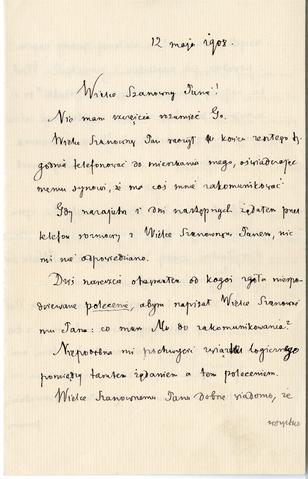 12 maja 1908.
Wielce Szanowny Panie!
Nie mam szczęścia rozumieć Go.
Wielce Szanowny Pan raczył w końcu zeszłego ty-
godnia telefonować do mieszkania mego, oświadczając
memu synowi, że ma coś mnie zakomunikować.
Gdy nazajutrz i dni następnych żądałem przez
telefon rozmowy z Wielce Szanownym Panem, nic
mi nie odpowiedziano.
Dziś nareszcie otrzymałem od kogoś zgoła niespo-
dziewane polecenie, abym napisał Wielce Szanowne-
mu Panu: co mam Mu do zakomunikowania?
Niepodobna mi pochwycić związku logicznego
pomiędzy tamtem żądaniem a tem poleceniem.
Wielce Szanownemu Panu dobrze wiadomo, że
wszystko